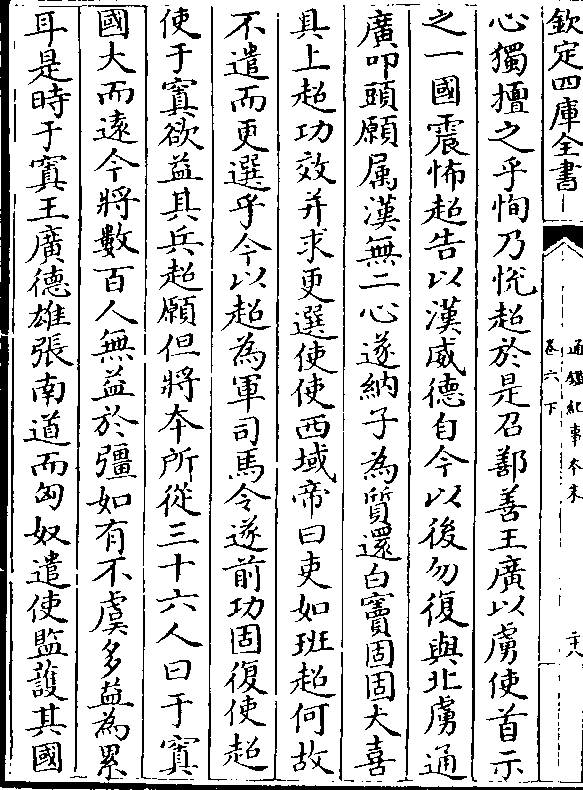 欽定四庫全書
通鑑紀事本末
卷六下
心獨擅之乎恂乃恱超於是召鄯善王廣以虜使首示
之一國震怖超告以漢威德自今以後勿復與北虜通
廣叩頭願屬漢無二心遂納子為質還白竇固固大喜
具上超功效并求更選使使西域帝曰吏如班超何故
不遣而更選乎今以超為軍司馬令遂前功固復使超
使于窴欲益其兵超願但將本所從三十六人曰于窴
國大而遠今將數百人無益於彊如有不虞多益為累
耳是時于窴王廣德雄張南道而匈奴遣使監護其國